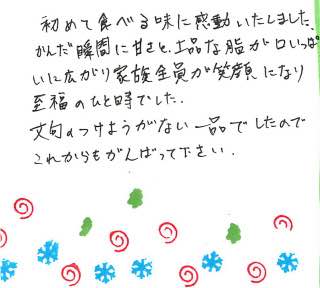 初めて食べる味に感動いたしました。
かんだ瞬間に甘さと、上品な脂が口いっぱ
いに広がり家族全員が笑顔になり
至福のひと時でした。
文句のつけようがない一品でしたので
これからもがんばって下さい。